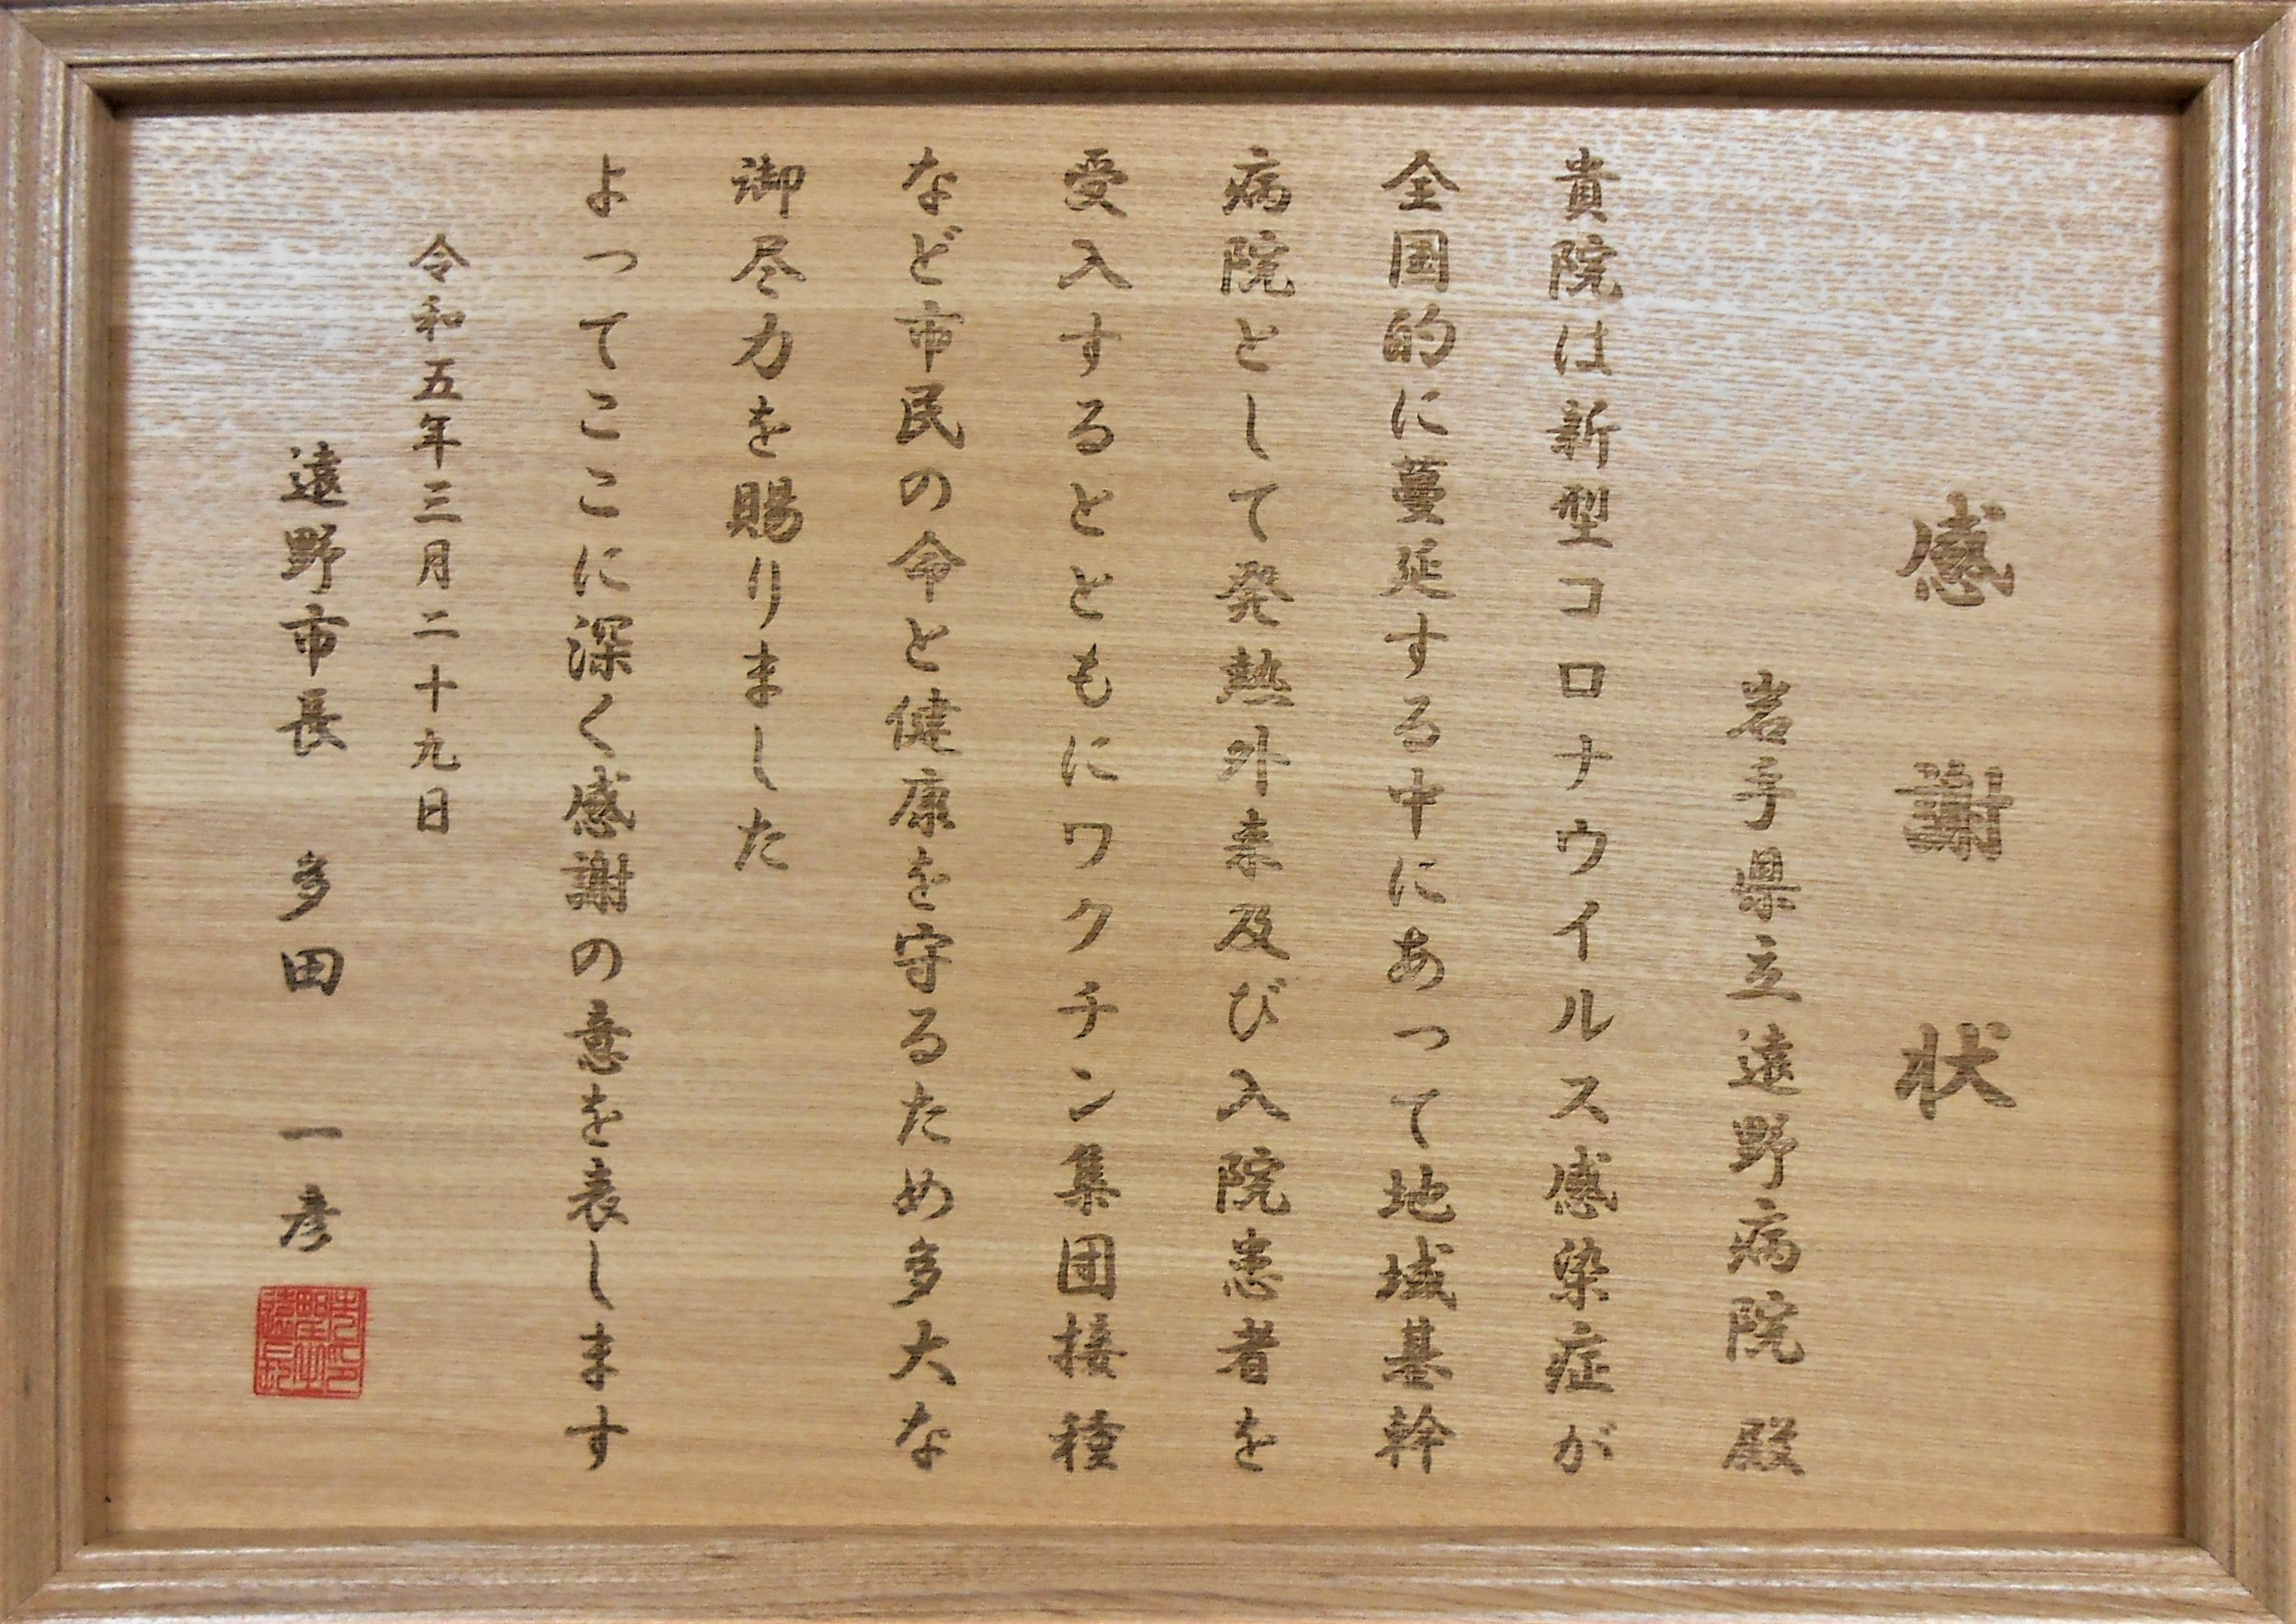 感謝状
岩手県立遠野病院 殿
貴院は新型コロナウイルス感染症が
全国的に蔓延する中にあって地域基幹
病院として発熱外来及び入院患者を
受入するとともにワクチン集団接種
など市民の命と健康を守るため多大な
御尽力を賜りました
よってここに深く感謝の意を表します
令和五年三月二十九日
遠野市長 多田 一彦